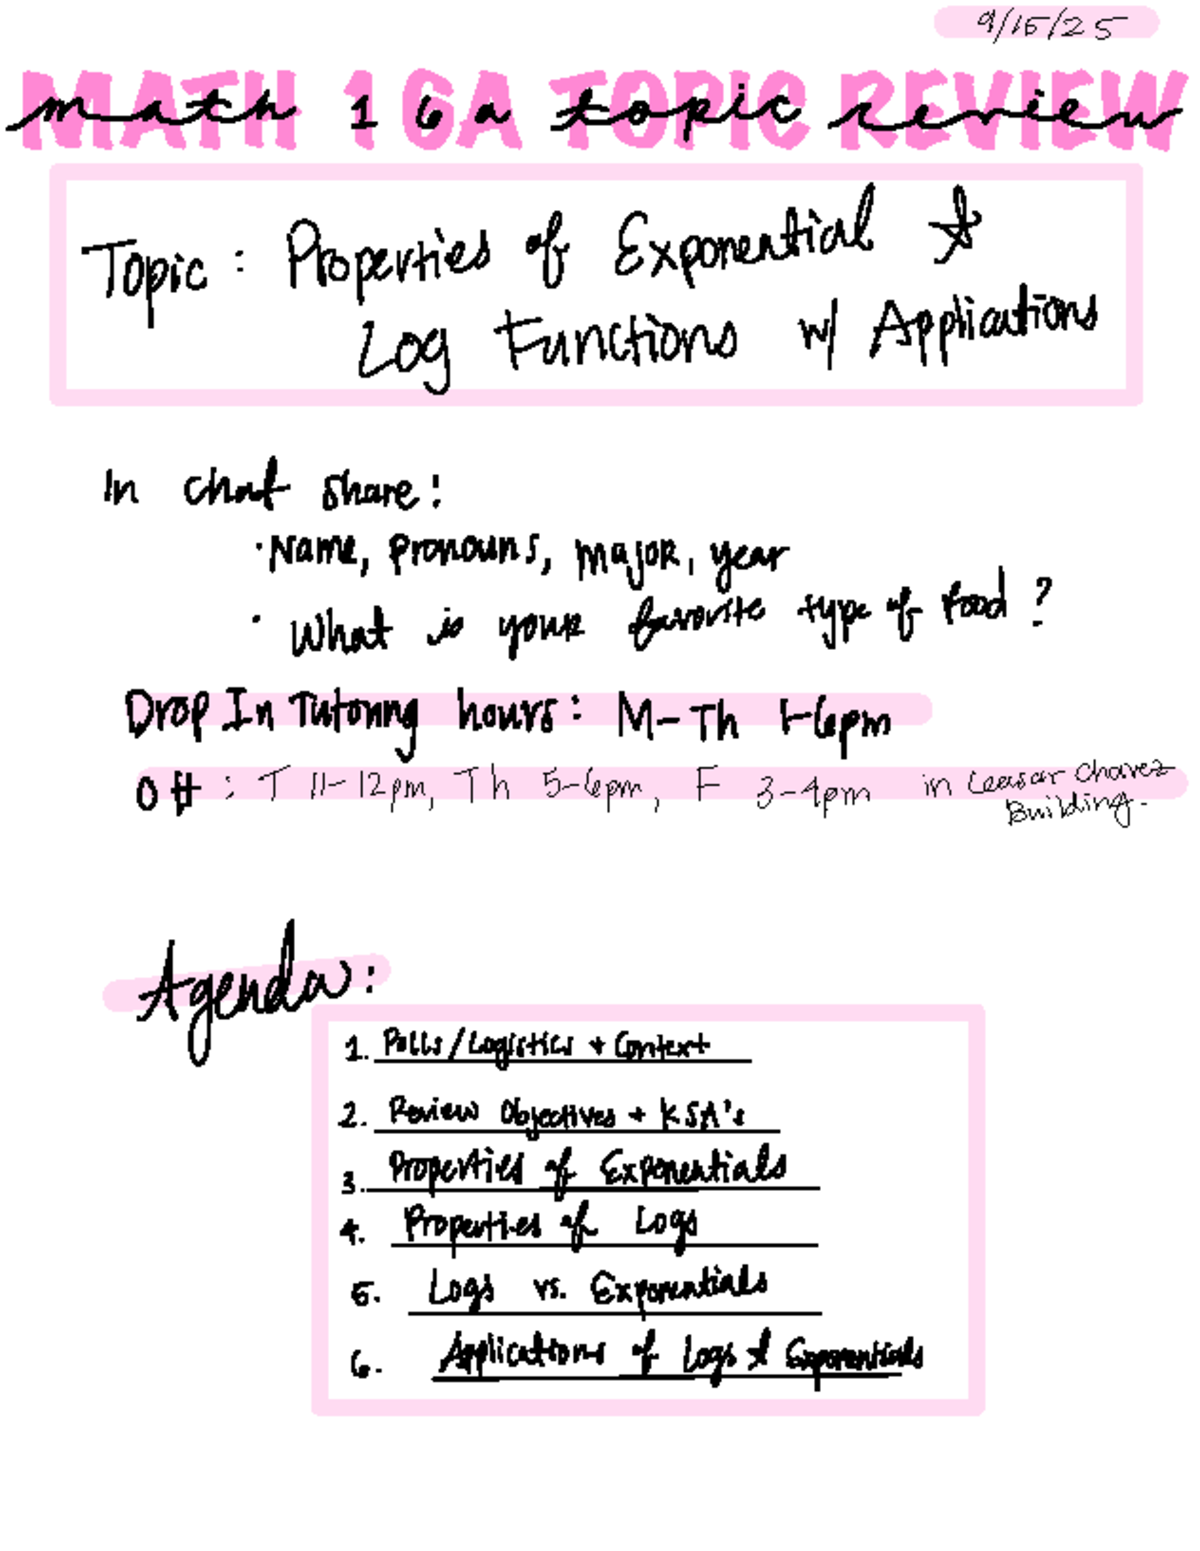 9/15/25
MATH 16A TOPIC REVIEW
math 16a topic review
Topic: Properties of Exponential &
Log Functions w/ Applications
In chat share:
· Name, pronouns, major, year
· What is your favorite type of food?
Drop In Tutoring hours: M-Th 1-6pm
OH: T 11-12pm, Th 5-6pm, F 3-4pm in Ceasar Chavez
Building.
Agenda:
1. Polls/Logistics + Context
2. Review Objectives + KSA's
3. Properties of Exponentials
4. Properties of Logs
5. Logs vs. Exponentials
6. Applications of Logs & Exponentials